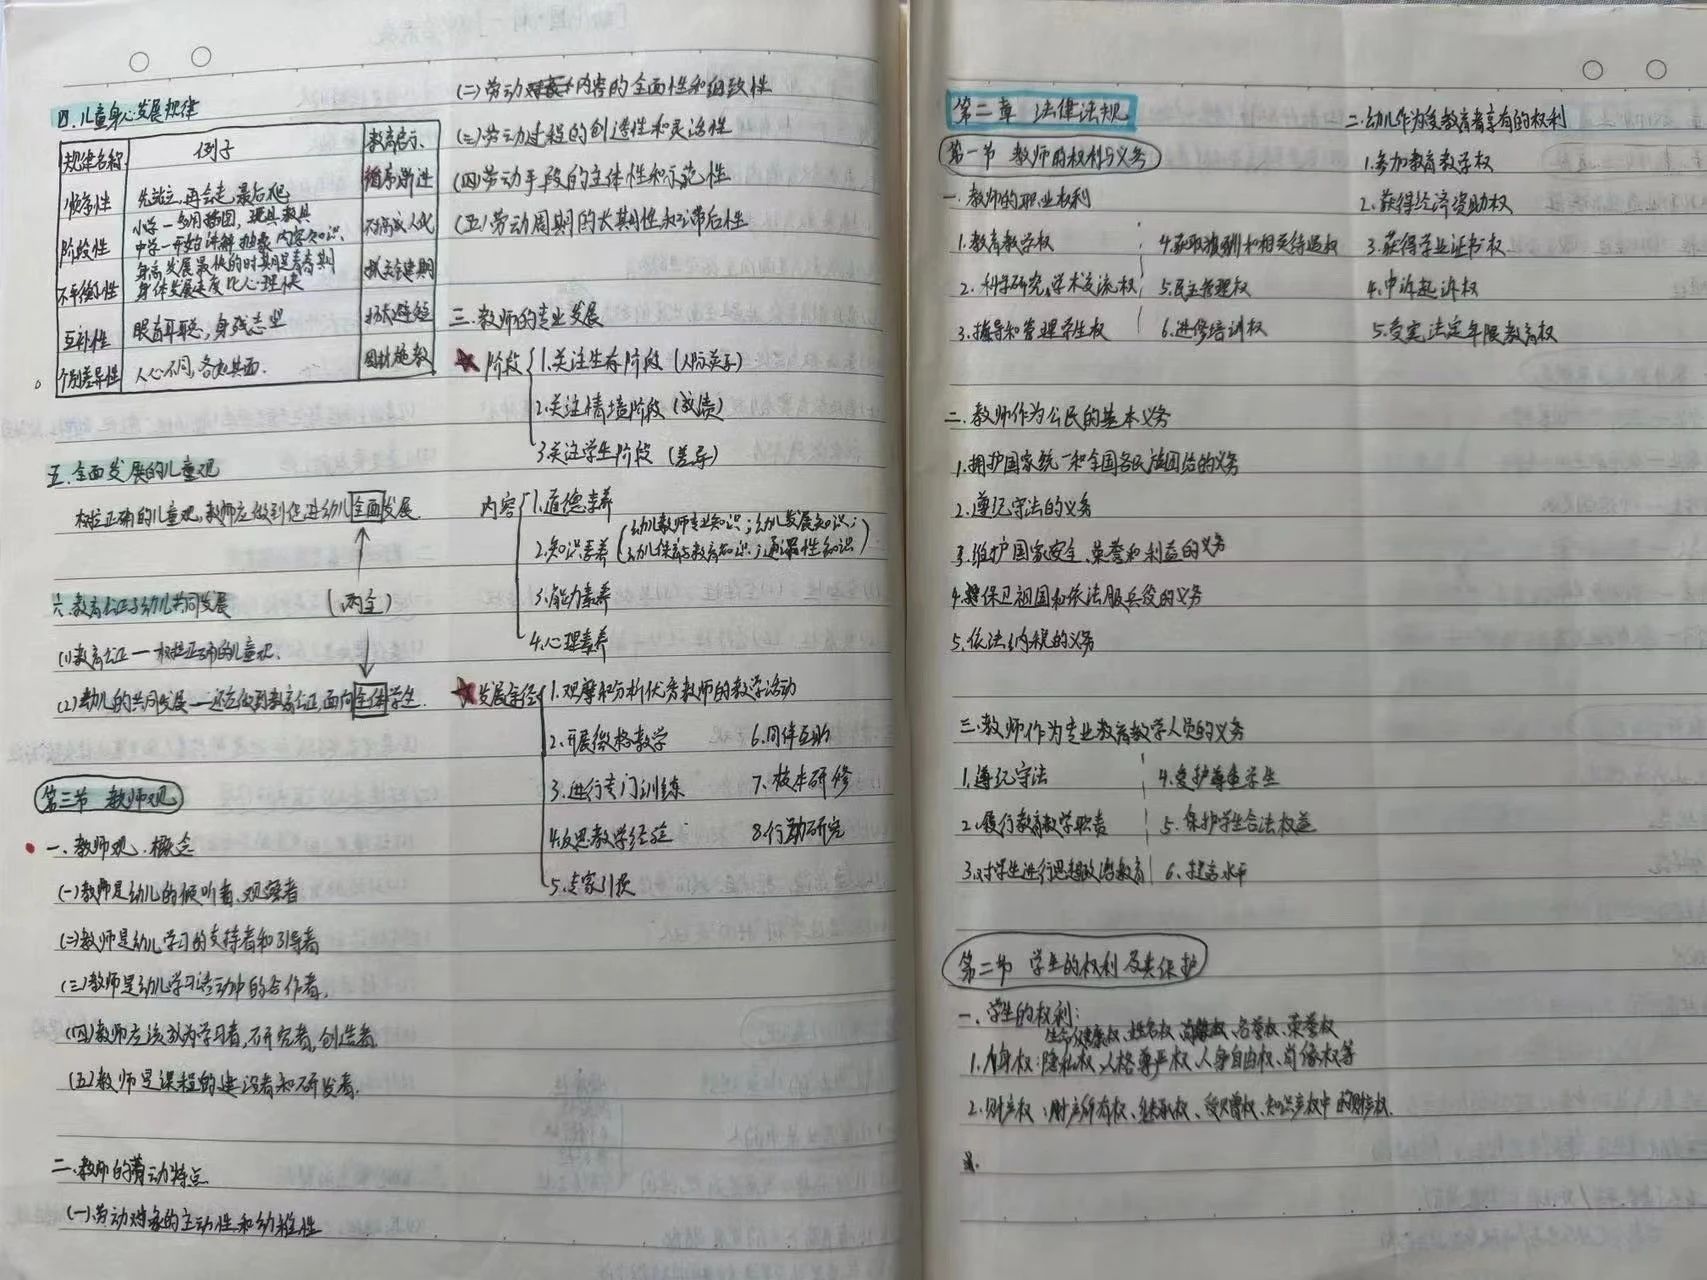 四.儿童身心发展规律
规律名称 例子 教育启示
顺序性 先站立,再会走,最后爬 循序渐进
阶段性 小学一多用插图,现具教具
中学一开始讲解抽象内容知识. 不搞成人化
不平衡性 身高发展最快的时期是青春期
身体发展速度比心理快 抓关键期
互补性 眼盲耳聪,身残志坚 扬长避短
个别差异性 人心不同,各如其面. 因材施教
五.全面发展的儿童观
树立正确的儿童观,教师应做到促进幼儿全面发展.
六.教育公正与幼儿共同发展 (两全)
(1)教育公正一树立正确的儿童观.
(2)幼儿的共同发展一还应做到教育公正,面向全体学生.
第三节 教师观
一.教师观.概念
(一)教师是幼儿的倾听者、观察者
(二)教师是幼儿学习的支持者和引导者
(三)教师是幼儿学习活动中的合作者.
(四)教师应该成为学习者,研究者,创造者.
(五)教师是课程的建设者和研发者.
二.教师的劳动特点
(一)劳动对象的主动性和幼稚性
(二)劳动内容的全面性和细致性
(三)劳动过程的创造性和灵活性
(四)劳动手段的主体性和示范性
(五)劳动周期的长期性和滞后性
三.教师的专业发展
★ 阶段 1.关注生存阶段(人际关系)
2.关注情境阶段(成绩)
3.关注学生阶段(差异)
内容 1.道德素养
2.知识素养(幼儿教师专业知识;幼儿发展知识;
幼儿保育与教育知识;通识性知识)
3.能力素养
4.心理素养
★发展途径 1.观摩和分析优秀教师的教学活动
2.开展微格教学 6.同伴互助
3.进行专门训练 7.校本研修
4.反思教学经验 8.行动研究
5.专家引领
第二章 法律法规
第一节 教师的权利与义务
一.教师的职业权利
1.教育教学权 4.获取报酬和相关待遇权
2.科学研究、学术交流权 5.民主管理权
3.指导和管理学生权 6.进修培训权
二.幼儿作为受教育者享有的权利
1.参加教育教学权
2.获得经济资助权
3.获得学业证书权
4.申诉起诉权
5.受完法定年限教育权
二.教师作为公民的基本义务
1.拥护国家统一和全国各民族团结的义务
2.遵纪守法的义务
3.维护国家安全、荣誉和利益的义务
4.保卫祖国和依法服兵役的义务
5.依法纳税的义务
三.教师作为专业教育教学人员的义务
1.遵纪守法 4.爱护尊重学生
2.履行教育教学职责 5.保护学生合法权益
3.对学生进行思想政治教育 6.提高水平
第二节 学生的权利及其保护
一.学生的权利:
生命健康权、姓名权、肖像权、名誉权、荣誉权
1.人身权:隐私权、人格尊严权、人身自由权、肖像权等
2.财产权:财产所有权、继承权、受赠权、知识产权中的财产权.